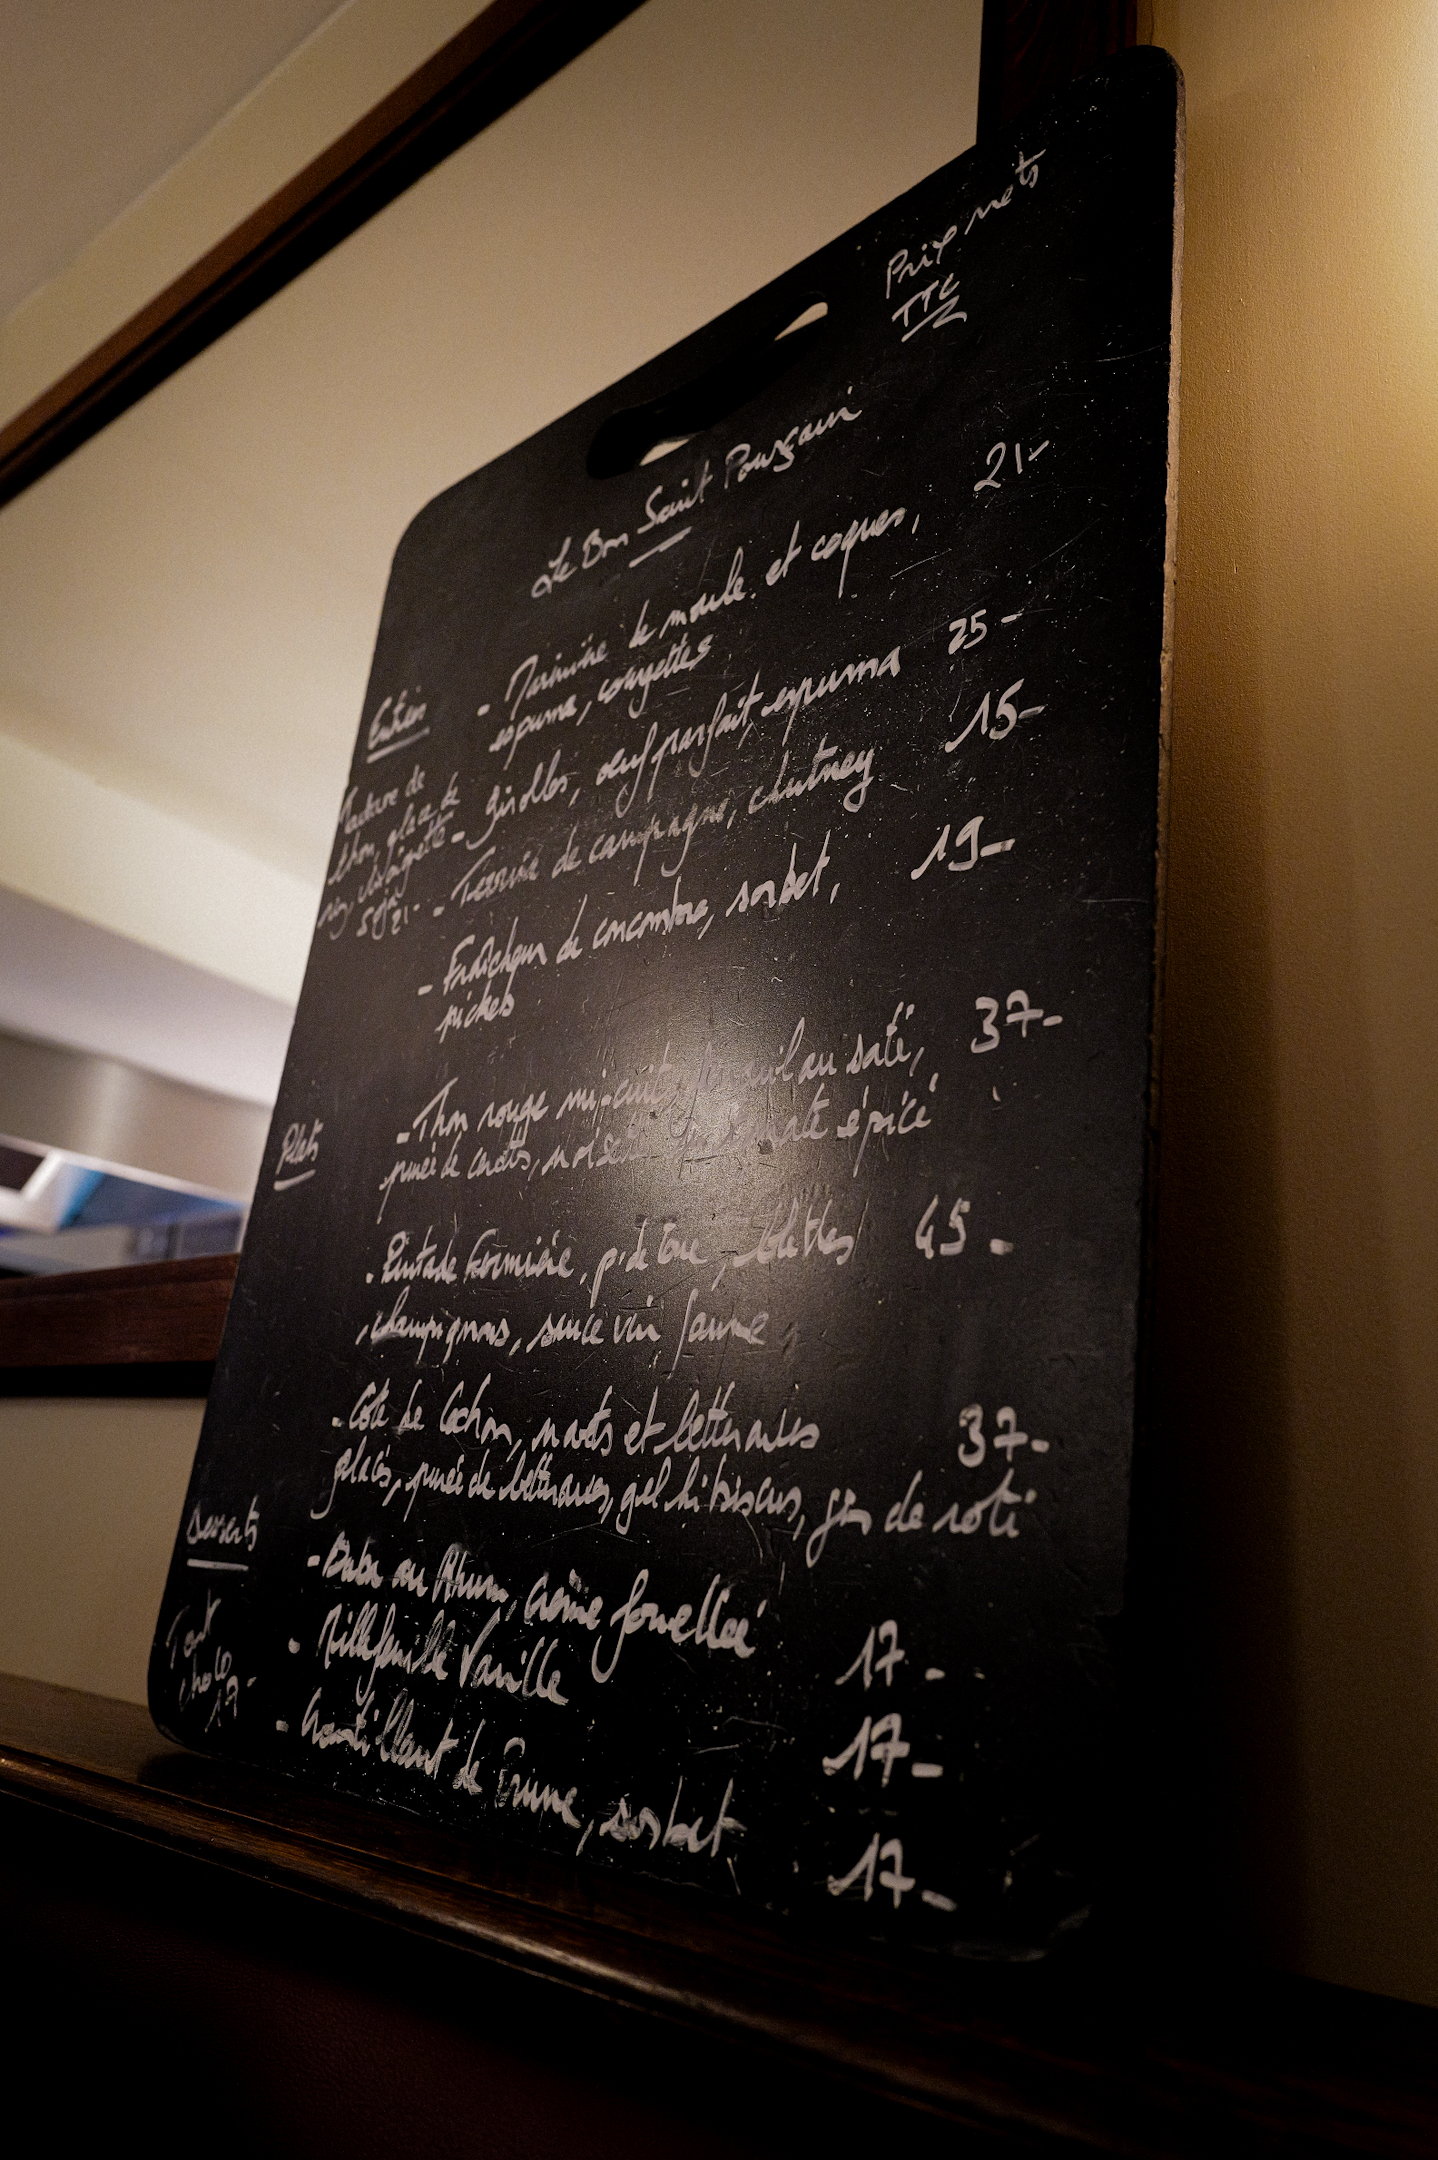 Prix nets
TTC
Le Bon Saint Pourçain
21-
- Marinière de moule et coques,
espuma, courgettes
Entrées
25-
- Girolles, oeuf parfait, espuma
15-
- Terrine de campagne, chutney
Tartare de
thon, glace de
riz, vinaigrette
Soja 21-
19-
- Fraîcheur de concombre, sorbet,
pickels
Plats
37-
- Thon rouge mi-cuit, au saté,
purée de carotts, épicé
. Pintade Fermière, p. de Terre, blettes 45-
, champignons, sauce vin jaune
. Côte de Cochon, navets et betteraves 37-
glacés, purée de betteraves, gel hibiscus, jus de roti
Desserts
- Baba au Rhum, crème fouettée 17-
- Millefeuille Vanille 17-
- Croustillant de Prune, sorbet 17-
Tart
choco
17-